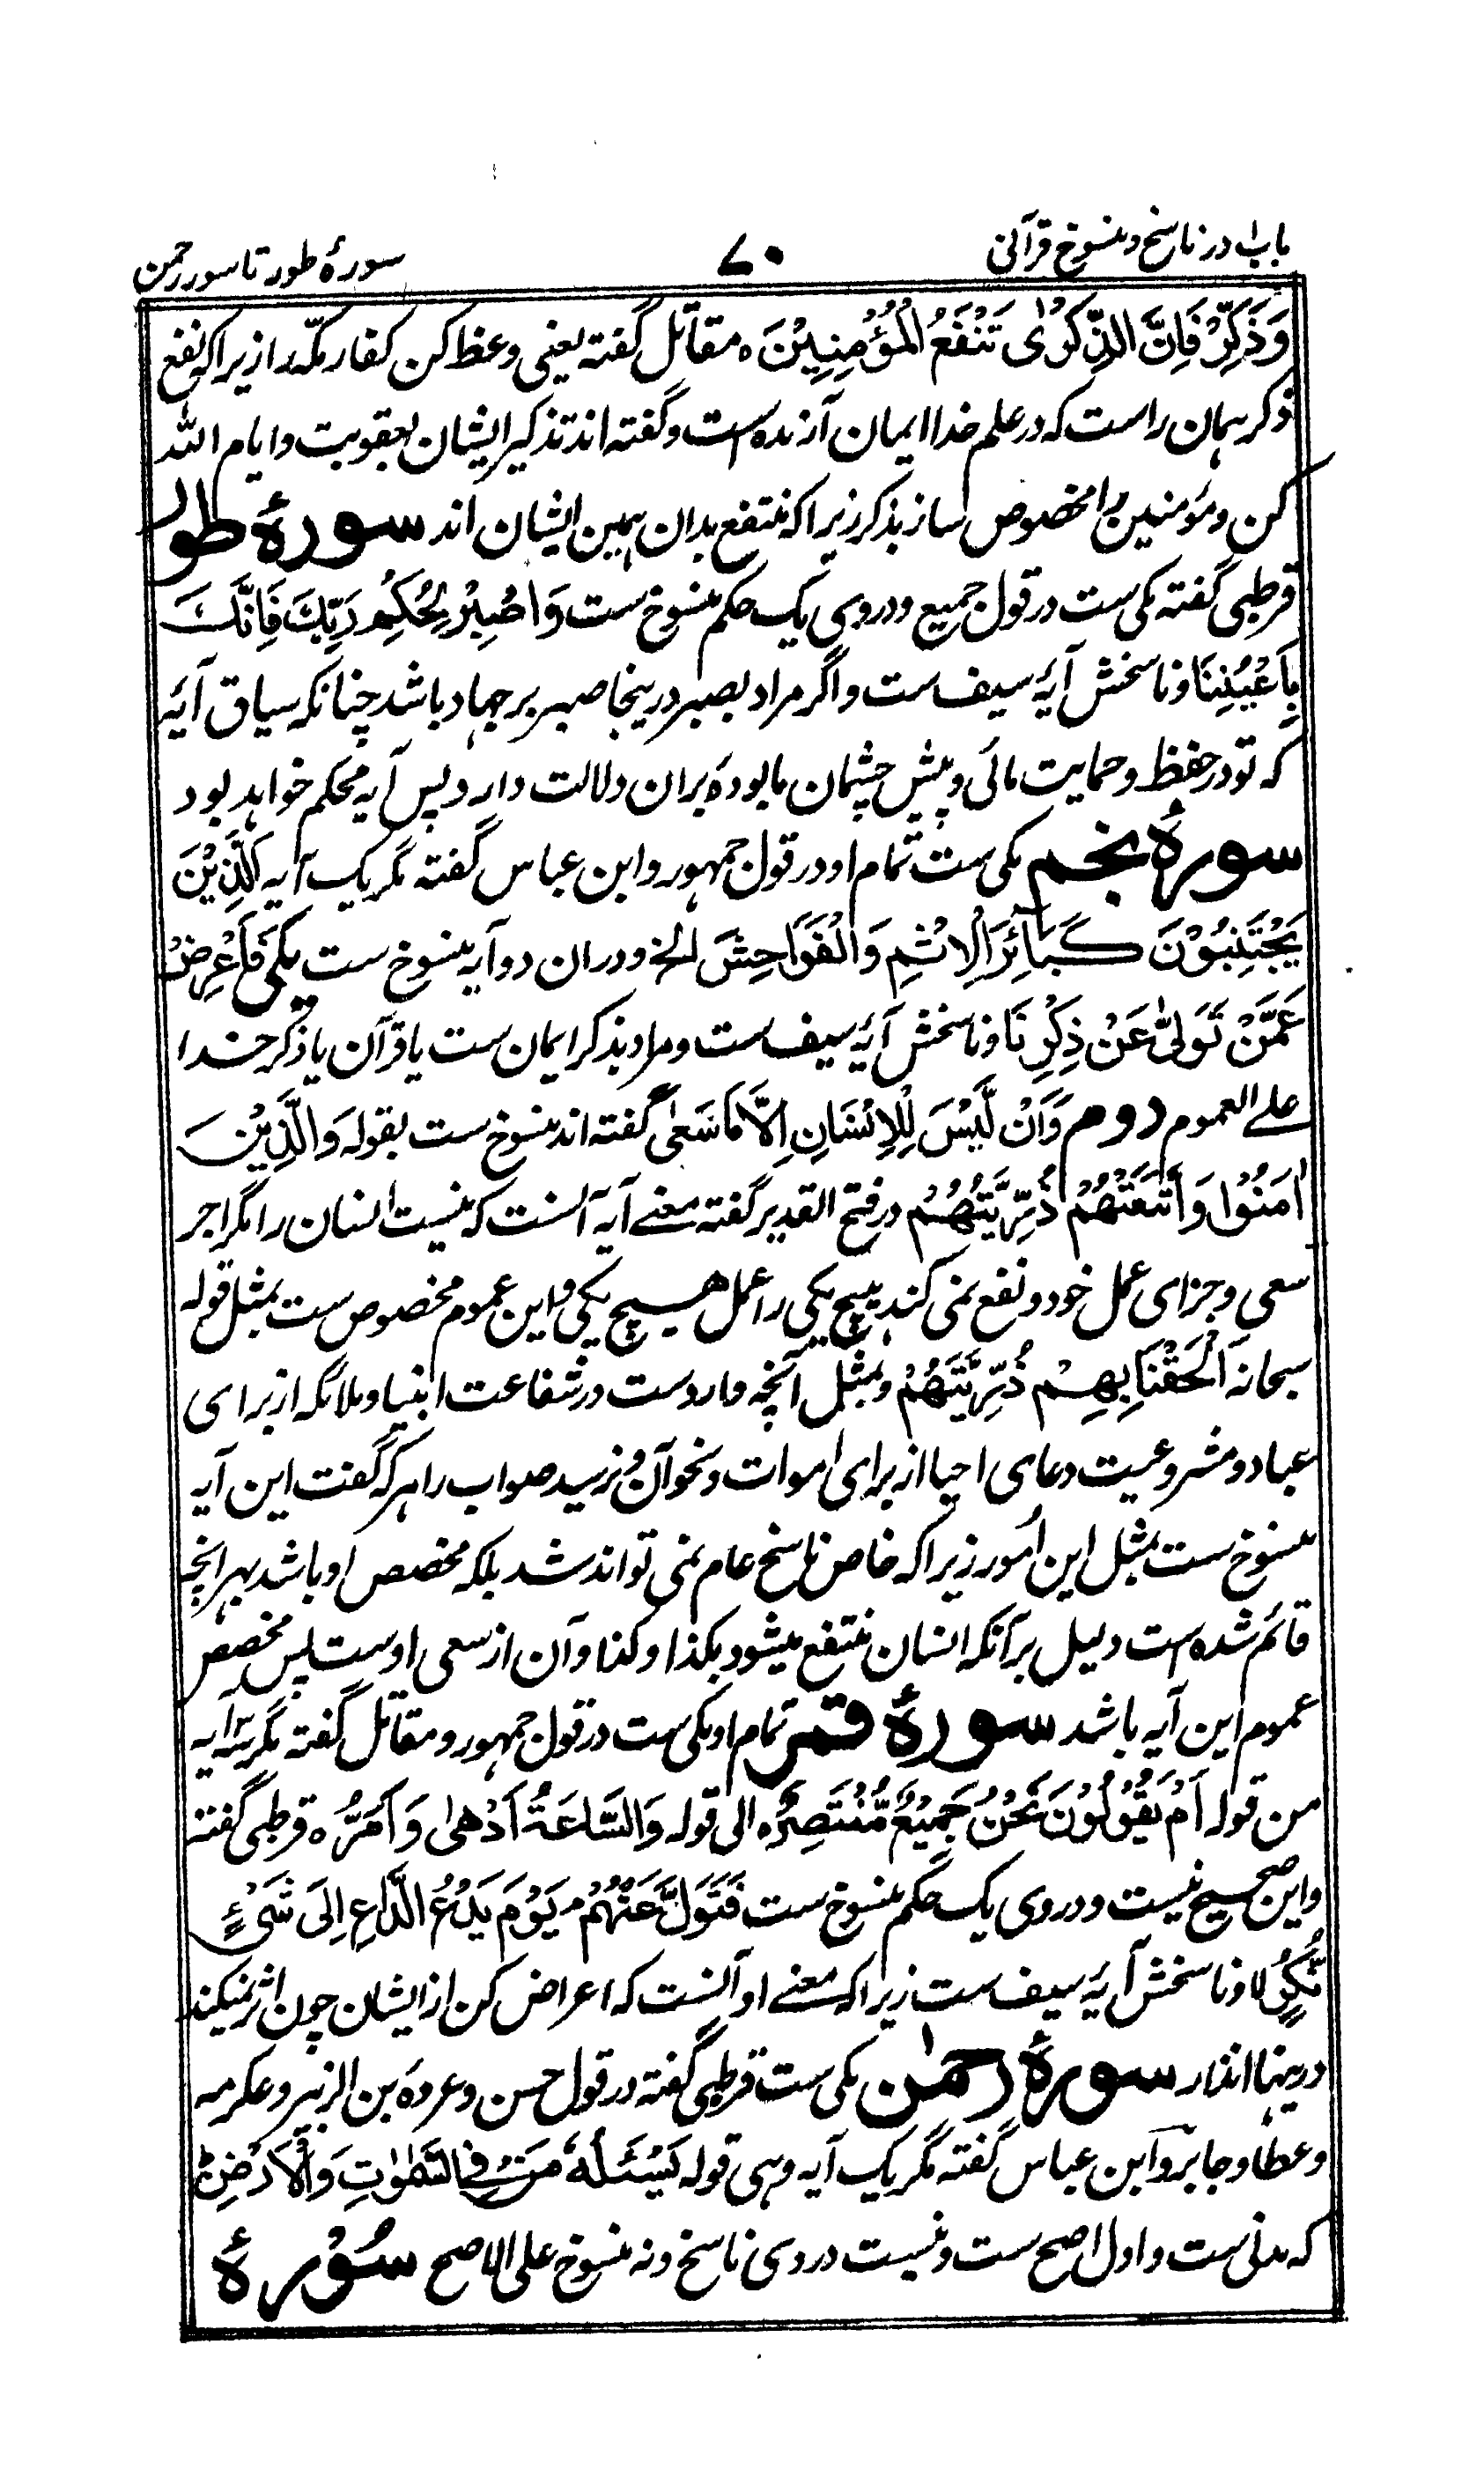 باب ا در ناسخ و منسوخ قرآنی
۷۰
سورۂ طور تا سور رحمن
وَذَكِّرْ فَاِنَّ الذِّكْرٰى تَنْفَعُ الْمُؤْمِنِيْنَ ه مقاتل گفته یعنی وعظ کن کفار مکّه را زیرا که نفع
ذکر همان راست که در علم خدا ایمان آرنده است و گفته اند تذکیر ایشان بعقوبت و ایام الله
کن و مؤمنین را مخصوص ساز بذکر زیرا که منتفع بدان همین ایشان اند سورۂ طور
قرطبی گفته مکی ست در قول جمیع و در وی یک حکم منسوخ ست وَاصْبِرْ لِحُكْمِ رَبِّكَ فَاِنَّكَ
بِاَعْيُنِنَا و ناسخش آیۂ سیف ست و اگر مراد بصبر درینجا صبر بر جهاد باشد چنانکه سیاق آیۂ
که تو در حفظ و حمایت مائی و پیش چشمان ما بودہ بران دلالت دارد پس آیه محکم خواهد بود
سورۂ نجم مکی ست تمام او در قول جمهور و ابن عباس گفته مگر یک آیه اَلَّذِيْنَ
يَجْتَنِبُوْنَ كَبَآئِرَ الْاِثْمِ وَالْفَوَاحِشَ الخ و دران دو آیه منسوخ ست یکی فَاَعْرِضْ
عَمَّنْ تَوَلّٰى عَنْ ذِكْرِنَا و ناسخش آیۂ سیف ست و مراد بذکر ایمان ست یا قرآن یا ذکر خدا
علے العموم دوم وَاَنْ لَّيْسَ لِلْاِنْسَانِ اِلَّا مَا سَعٰى گفته اند منسوخ ست بقوله وَالَّذِيْنَ
اٰمَنُوْا وَاتَّبَعَتْهُمْ ذُرِّيَّتُهُمْ در فتح القدیر گفته معنے آیه آنست که نیست انسان را مگر اجر
سعی و جزای عمل خود و نفع نمی کند هیچ یکی را عمل هیچ یکی و این عموم مخصوص ست بمثل قوله
سبحانه اَلْحَقْنَا بِهِمْ ذُرِّيَّتَهُمْ و بمثل آنچه وارد ست در شفاعت انبیا و ملائکه از برای
عباد و مشروعیت دعای احیا از برای اموات و نحو آن و نرسید صواب را هر که گفت این آیه
منسوخ ست بمثل این اُمور زیرا که خاص ناسخ عام نمی تواند شد بلکه مخصص او باشد بهر آنچه
قائم شده است دلیل بر آنکه انسان منتفع میشود بکذا و کذا و آن از سعی او ست پس مخصص
عموم این آیه باشد سورۂ قمر تمام او مکی ست در قول جمهور و مقاتل گفته مگر سه آیه
من قوله اَمْ يَقُوْلُوْنَ نَحْنُ جَمِيْعٌ مُّنْتَصِرٌ ه الی قوله وَالسَّاعَةُ اَدْهٰى وَاَمَرُّ ه قرطبی گفته
و این صحیح نیست و در وی یک حکم منسوخ ست فَتَوَلَّ عَنْهُمْ م يَوْمَ يَدْعُ الدَّاعِ اِلٰى شَیْءٍ
نُّكُرٍ لا و ناسخش آیۂ سیف ست زیرا که معنے او آنست که اعراض کن از ایشان چون اثر نمیکند
درینها انذار سورۂ رحمٰن مکی ست قرطبی گفته در قول حسن و عروہ بن الزبیر و عکرمه
و عطا و جابر و ابن عباس گفته مگر یک آیه وهی قوله يَسْئَلُهٗ مَنْ فِی السَّمٰوٰتِ وَالْاَرْضِ ط
که مدنی ست و اول اصح ست و نیست در وی ناسخ و نه منسوخ علی الاصح سُوْرۂ